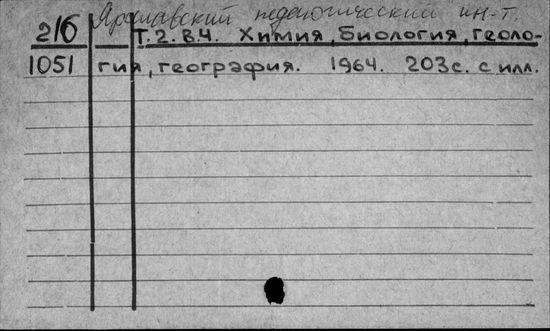 Ярославский педагогический ин-т.
216 Т.2. В.4. Химия, биология, геоло-
1051 гия, география. 1964. 203с. с илл.